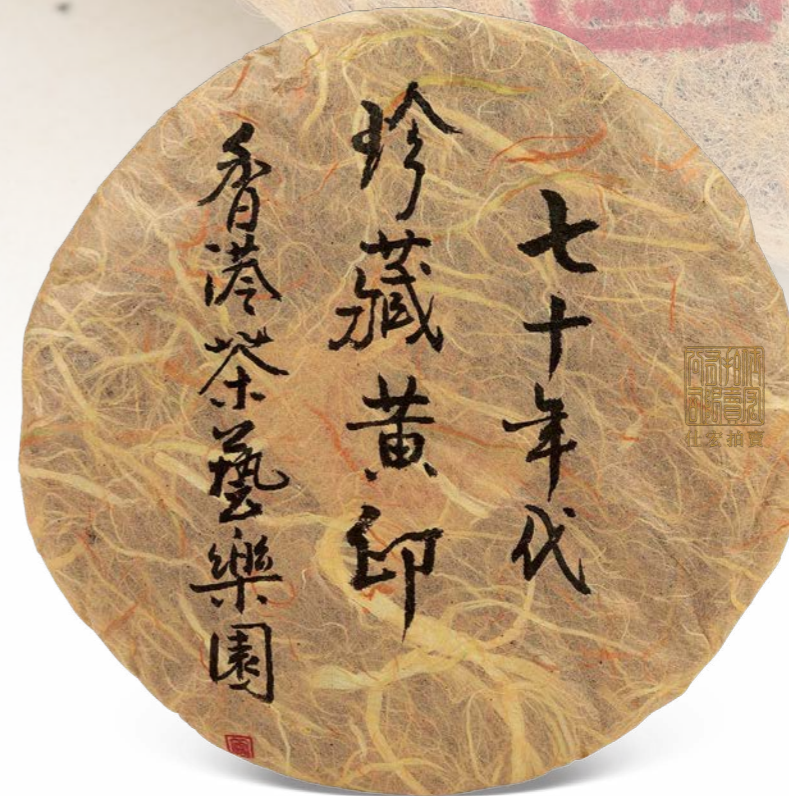 七十年代
珍藏黄印
香港茶藝樂園
仕宏拍賣